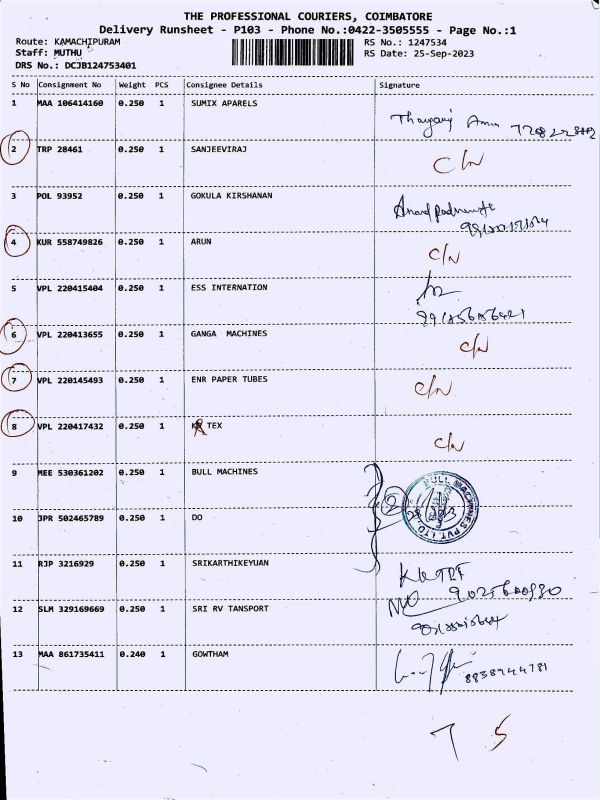 THE PROFESSIONAL COURIERS, COIMBATORE
Delivery Runsheet - P103 - Phone No.:0422-3505555 - Page No.:1
Route: KAMACHIPURAM RS No.: 1247534
Staff: MUTHU RS Date: 25-Sep-2023
DRS No.: DCJB124753401
S No Consignment No Weight PCS Consignee Details Signature
1 MAA 106414160 0.250 1 SUMIX APARELS
2 TRP 28461 0.250 1 SANJEEVIRAJ C/N
3 POL 93952 0.250 1 GOKULA KIRSHANAN
4 KUR 558749826 0.250 1 ARUN C/N
5 VPL 220415404 0.250 1 ESS INTERNATION
6 VPL 220413655 0.250 1 GANGA MACHINES C/N
7 VPL 220145493 0.250 1 ENR PAPER TUBES C/N
8 VPL 220417432 0.250 1 TEX C/N
9 MEE 530361202 0.250 1 BULL MACHINES
BULL MACHINES PVT. LTD.
10 JPR 502465789 0.250 1 DO
11 RJP 3216929 0.250 1 SRIKARTHIKEYUAN
12 SLM 329169669 0.250 1 SRI RV TANSPORT
13 MAA 861735411 0.240 1 GOWTHAM
8838944781
7 5